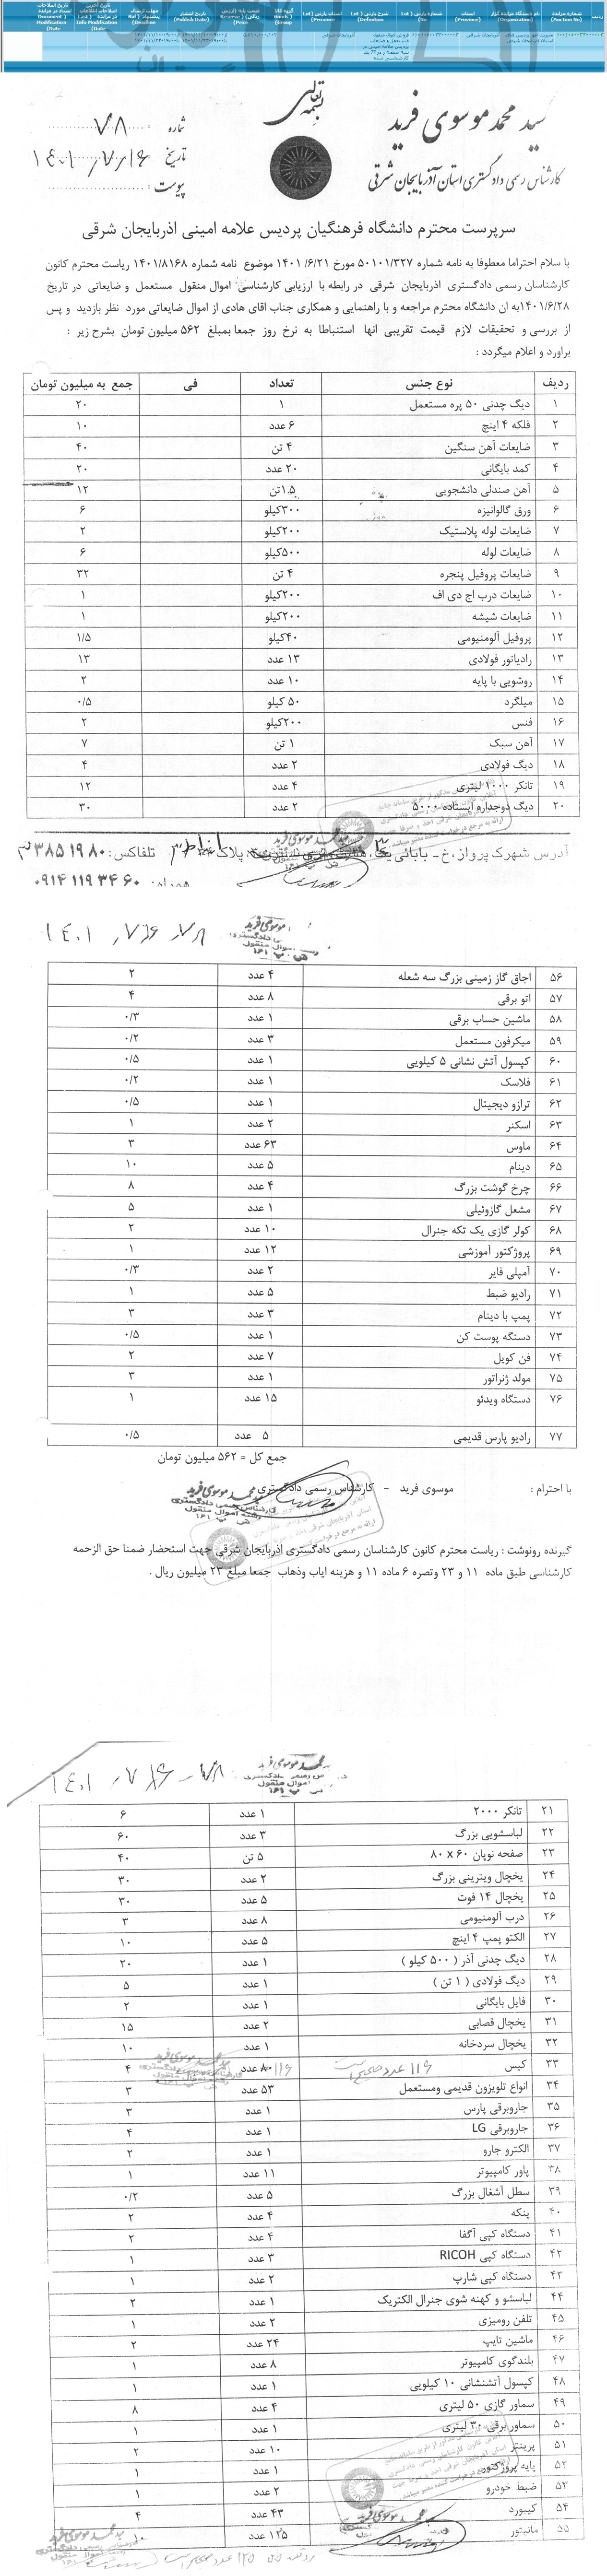 سید محمد موسوی فرید
کارشناس رسمی دادگستری استان آذربایجان شرقی
بسمه تعالی
شماره : ۷۸
تاریخ ۱۴۰۱/۷/۱۶
پیوست :
سرپرست محترم دانشگاه فرهنگیان پردیس علامه امینی اذربایجان شرقی
با سلام احتراما معطوفا به نامه شماره ۵۰۱۰۱/۳۲۷ مورخ ۱۴۰۱/۶/۲۱ موضوع نامه شماره ۱۴۰۱/۸۱۶۸ ریاست محترم کانون
کارشناسان رسمی دادگستری اذربایجان شرقی در رابطه با ارزیابی کارشناسی اموال منقول مستعمل و ضایعاتی در تاریخ
۱۴۰۱/۶/۲۸به ان دانشگاه محترم مراجعه و با راهنمایی و همکاری جناب اقای هادی از اموال ضایعاتی مورد نظر بازدید و پس
از بررسی و تحقیقات لازم قیمت تقریبی انها استنباطا به نرخ روز جمعا بمبلغ ۵۶۲ میلیون تومان بشرح زیر :
براورد و اعلام میگردد :
ردیف نوع جنس تعداد فی جمع به میلیون تومان
۱ دیگ چدنی ۵۰ پره مستعمل ۱ ۲۰
۲ فلکه ۴ اینچ ۶ عدد ۱۰
۳ ضایعات آهن سنگین ۴ تن ۴۰
۴ کمد بایگانی ۲۰ عدد ۲۰
۵ آهن صندلی دانشجویی ۱.۵تن ۱۲
۶ ورق گالوانیزه ۳۰۰کیلو ۶
۷ ضایعات لوله پلاستیک ۲۰۰کیلو ۲
۸ ضایعات لوله ۵۰۰کیلو ۶
۹ ضایعات پروفیل پنجره ۴ تن ۳۲
۱۰ ضایعات درب اچ دی اف ۲۰۰کیلو ۱
۱۱ ضایعات شیشه ۲۰۰کیلو ۱
۱۲ پروفیل آلومنیومی ۴۰کیلو ۱/۵
۱۳ رادیاتور فولادی ۱۳ عدد ۱۳
۱۴ روشویی با پایه ۱۰ عدد ۲
۱۵ میلگرد ۵۰ کیلو ۰/۵
۱۶ فنس ۲۰۰کیلو ۲
۱۷ آهن سبک ۱ تن ۷
۱۸ دیگ فولادی ۲ عدد ۴
۱۹ تانکر ۱۰۰۰ لیتری ۴ عدد ۱۲
۲۰ دیگ دوجداره ایستاده ۵۰۰۰ ۲ عدد ۳۰
آدرس شهرک پرواز، خ - بابائی پلاک تلفاکس: ۳۳۸۵۱۹۸۰
همراه: ۰۹۱۴۱۱۹۳۴۶۰
۱۴۰۱/۷/۱۶ - ۷۸
۵۶ اجاق گاز زمینی بزرگ سه شعله ۴ عدد ۲
۵۷ اتو برقی ۸ عدد ۴
۵۸ ماشین حساب برقی ۱ عدد ۰/۳
۵۹ میکرفون مستعمل ۳ عدد ۰/۲
۶۰ کپسول آتش نشانی ۵ کیلویی ۱ عدد ۰/۵
۶۱ فلاسک ۱ عدد ۰/۲
۶۲ ترازو دیجیتال ۱ عدد ۰/۵
۶۳ اسکنر ۲ عدد ۱
۶۴ ماوس ۶۳ عدد ۳
۶۵ دینام ۵ عدد ۱۰
۶۶ چرخ گوشت بزرگ ۴ عدد ۸
۶۷ مشعل گازوئیلی ۱ عدد ۵
۶۸ کولر گازی یک تکه جنرال ۱۰ عدد ۲
۶۹ پروژکتور آموزشی ۱۲ عدد ۱
۷۰ آمپلی فایر ۲ عدد ۰/۳
۷۱ رادیو ضبط ۵ عدد ۱
۷۲ پمپ با دینام ۳ عدد ۳
۷۳ دستگه پوست کن ۱ عدد ۰/۵
۷۴ فن کویل ۷ عدد ۲
۷۵ مولد ژنراتور ۱ عدد ۳
۷۶ دستگاه ویدئو ۱۵ عدد ۱
۷۷ رادیو پارس قدیمی ۵ عدد ۰/۵
جمع کل = ۵۶۲ میلیون تومان
با احترام : موسوی فرید - کارشناس رسمی دادگستری
گیرنده رونوشت : ریاست محترم کانون کارشناسان رسمی دادگستری اذربایجان شرقی جهت استحضار ضمنا حق الزحمه
کارشناسی طبق ماده ۱۱ و ۲۳ وتصره ۶ ماده ۱۱ و هزینه ایاب وذهاب جمعا مبلغ ۲۳ میلیون ریال .
۱۴۰۱/۷/۱۶ - ۷۸
۲۱ تانکر ۲۰۰۰ ۱ عدد ۶
۲۲ لباسشویی بزرگ ۳ عدد ۶۰
۲۳ صفحه نوپان ۶۰ x ۸۰ ۵ تن ۴۰
۲۴ یخچال ویترینی بزرگ ۲ عدد ۳۰
۲۵ یخچال ۱۴ فوت ۵ عدد ۳۰
۲۶ درب آلومنیومی ۸ عدد ۳
۲۷ الکتو پمپ ۴ اینچ ۵ عدد ۱۰
۲۸ دیگ چدنی آذر ( ۵۰۰ کیلو ) ۱ عدد ۲۰
۲۹ دیگ فولادی ( ۱ تن ) ۱ عدد ۵
۳۰ فایل بایگانی ۱ عدد ۲
۳۱ یخچال قصابی ۲ عدد ۱۵
۳۲ یخچال سردخانه ۱ عدد ۱۰
۳۳ کیس ۱۱۶ عدد صحیح است ۸۰ عدد ۱۱۶ ۴
۳۴ انواع تلویزون قدیمی ومستعمل ۵۳ عدد ۳
۳۵ جاروبرقی پارس ۱ عدد ۳
۳۶ جاروبرقی LG ۱ عدد ۴
۳۷ الکترو جارو ۱ عدد ۲
۳۸ پاور کامپیوتر ۱۱ عدد ۱
۳۹ سطل آشغال بزرگ ۵ عدد ۰/۲
۴۰ پنکه ۴ عدد ۲
۴۱ دستگاه کپی آگفا ۴ عدد ۲
۴۲ دستگاه کپی RICOH ۳ عدد ۱
۴۳ دستگاه کپی شارپ ۲ عدد ۱
۴۴ لباسشو و کهنه شوی جنرال الکتریک ۱ عدد ۲
۴۵ تلفن رومیزی ۲ عدد ۱
۴۶ ماشین تایپ ۲۴ عدد ۲
۴۷ بلندگوی کامپیوتر ۸ عدد ۱
۴۸ کپسول آتشنشانی ۱۰ کیلویی ۱ عدد ۱
۴۹ سماور گازی ۵۰ لیتری ۴ عدد ۸
۵۰ سماور برقی ۳۰ لیتری ۱ عدد ۱
۵۱ پرینتر ۱۰ عدد ۲
۵۲ پایه پروژکتور ۱ عدد ۱
۵۳ ضبط خودرو ۲ عدد ۱
۵۴ کیبورد ۴۳ عدد ۴
۵۵ مانیتور ۱۲۵ عدد ۱۰